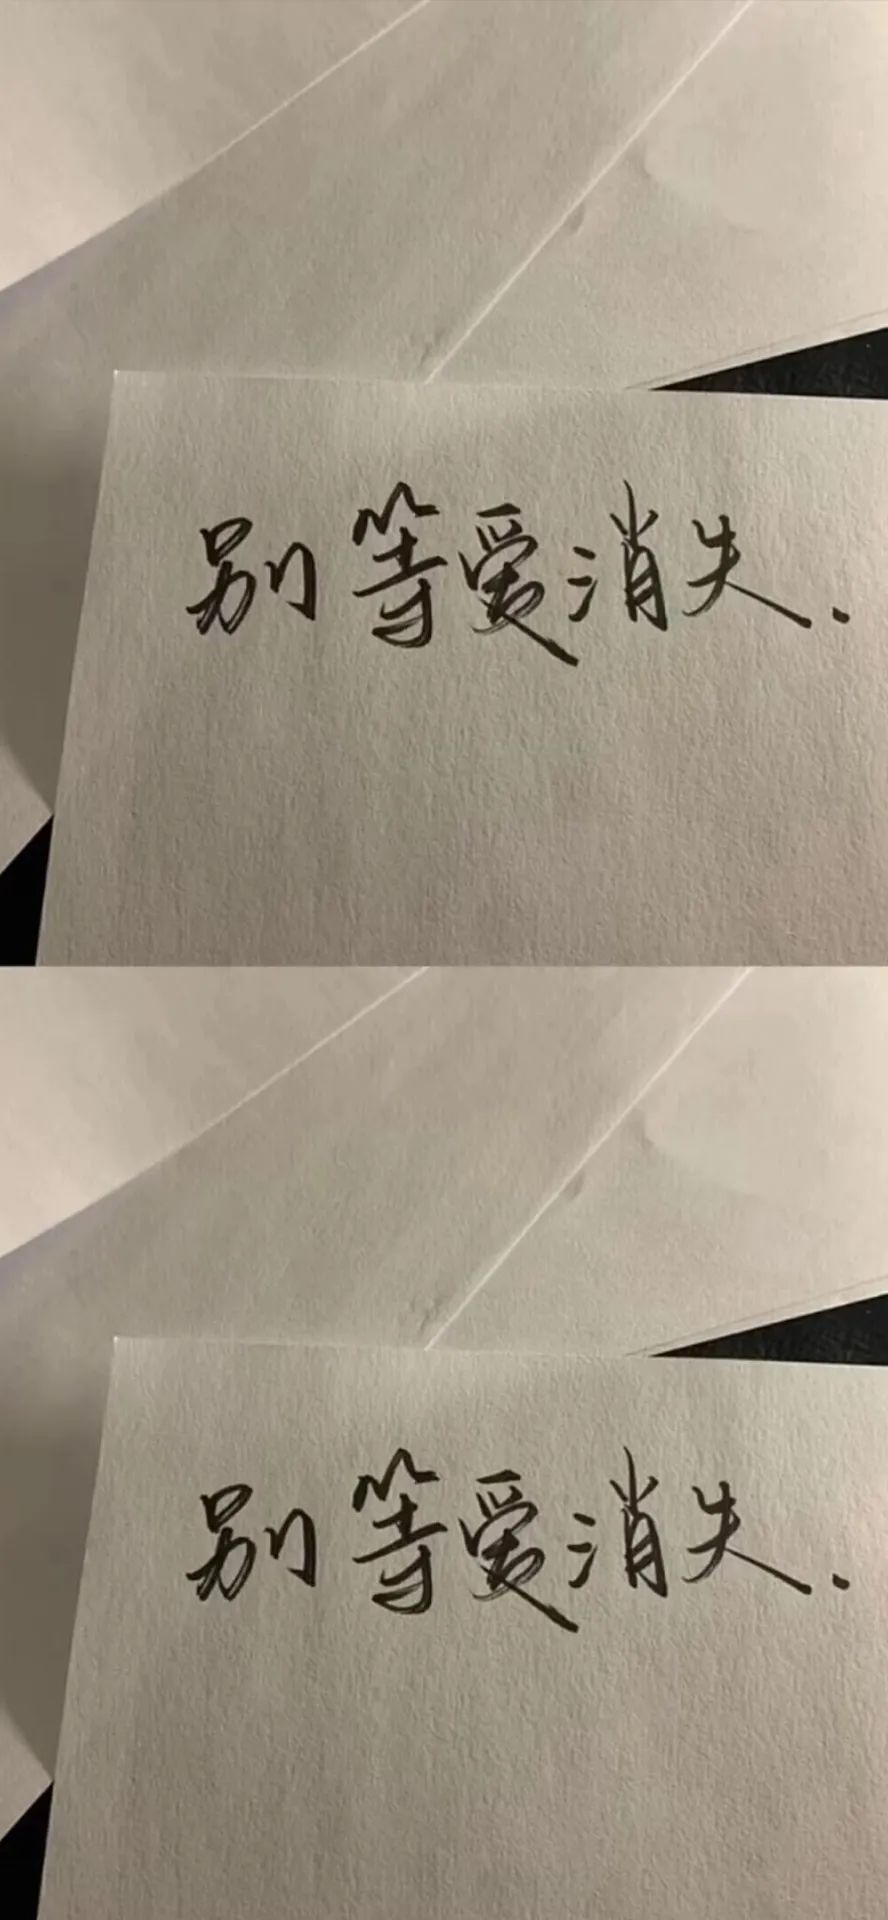 别等爱消失.
别等爱消失.